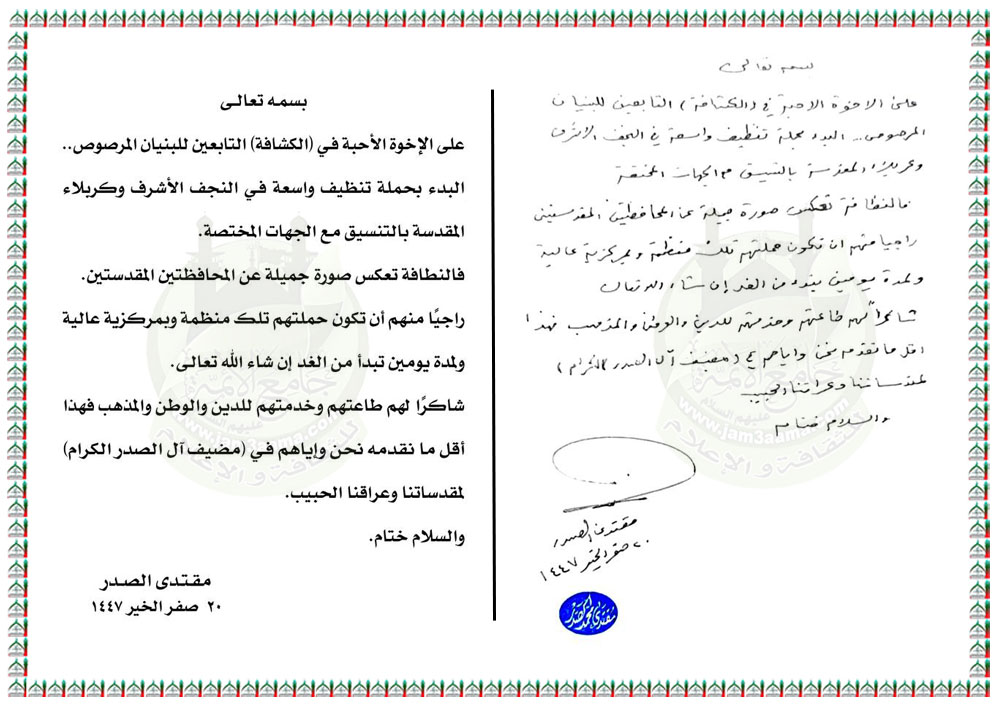 بسمه تعالى
على الاخوة الاحبة في (الكشافة) التابعين للبنيان
المرصوص.. البدء بحملة تنظيف واسعة في النجف الاشرف
وكربلاء المقدسة بالتنسيق مع الجهات المختصة
فالنظافة تعكس صورة جميلة عن المحافظتين المقدستين
راجيا منهم ان تكون حملتهم تلك منظمة وبمركزية عالية
ولمدة يومين تبدء من الغد إن شاء الله تعالى
شاكراً لهم طاعتهم وخدمتهم للدين والوطن والمذهب فهذا
اقل ما نقدمه نحن واياهم في (مضيف آل الصدر الكرام)
لمقدساتنا وعراقنا الحبيب
والسلام ختام
مقتدى الصدر
٢٠ صفر الخير ١٤٤٧
بسمه تعالى
على الإخوة الأحبة في (الكشافة) التابعين للبنيان المرصوص..
البدء بحملة تنظيف واسعة في النجف الأشرف وكربلاء
المقدسة بالتنسيق مع الجهات المختصة.
فالنظافة تعكس صورة جميلة عن المحافظتين المقدستين.
راجيًا منهم أن تكون حملتهم تلك منظمة وبمركزية عالية
ولمدة يومين تبدأ من الغد إن شاء الله تعالى.
شاكرًا لهم طاعتهم وخدمتهم للدين والوطن والمذهب فهذا
أقل ما نقدمه نحن وإياهم في (مضيف آل الصدر الكرام)
لمقدساتنا وعراقنا الحبيب.
والسلام ختام.
مقتدى الصدر
٢٠ صفر الخير ١٤٤٧
جامع الأئمة
عليهم السلام
www.jam3aama.com
للثقافة والإعلام